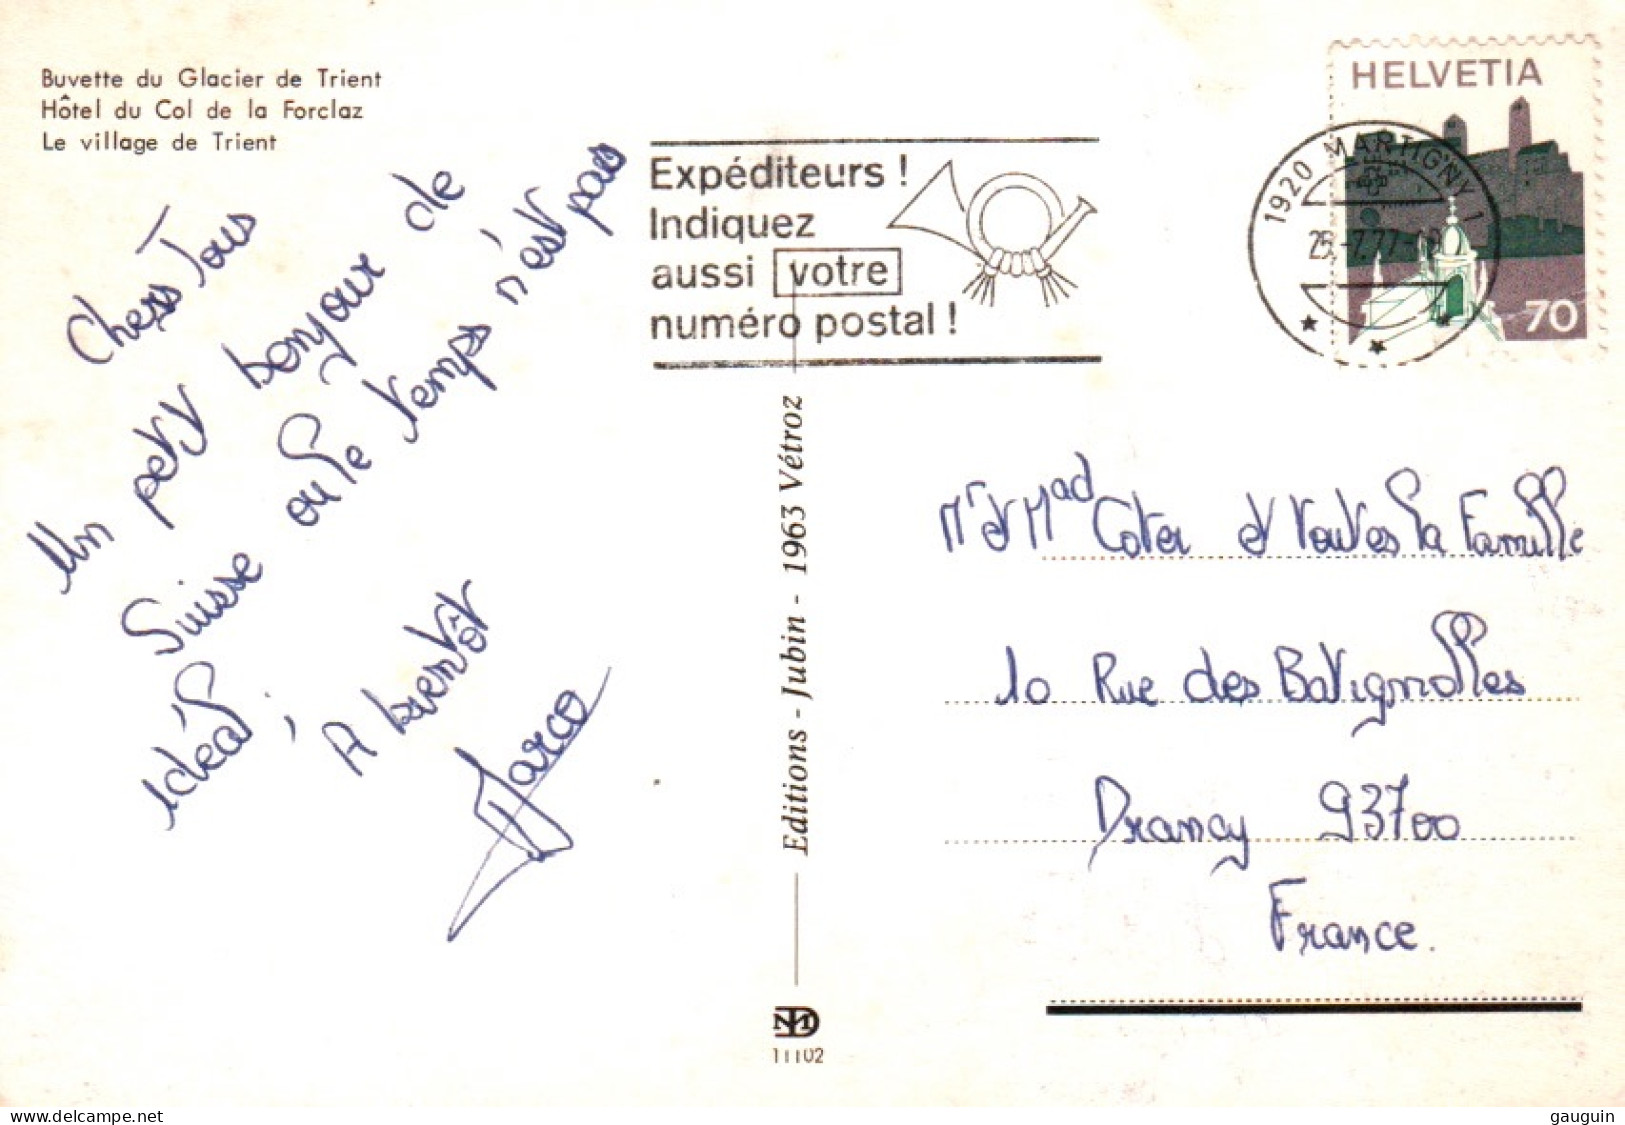 Buvette du Glacier de Trient
Hôtel du Col de la Forclaz
Le village de Trient
Chers Tous
Un petit bonjour de
Suisse où le temps n'est pas
idéal ;
A bientôt
Marco
Expéditeurs !
Indiquez
aussi votre
numéro postal !
HELVETIA
70
1920 MARTIGNY 1
25.-7.77-19
Editions - Jubin - 1963 Vétroz
Mr et Mad Coter et toutes la Famille
10 Rue des Batignolles
Drancy 93700
France.
11102
delcampe.net
gauguin